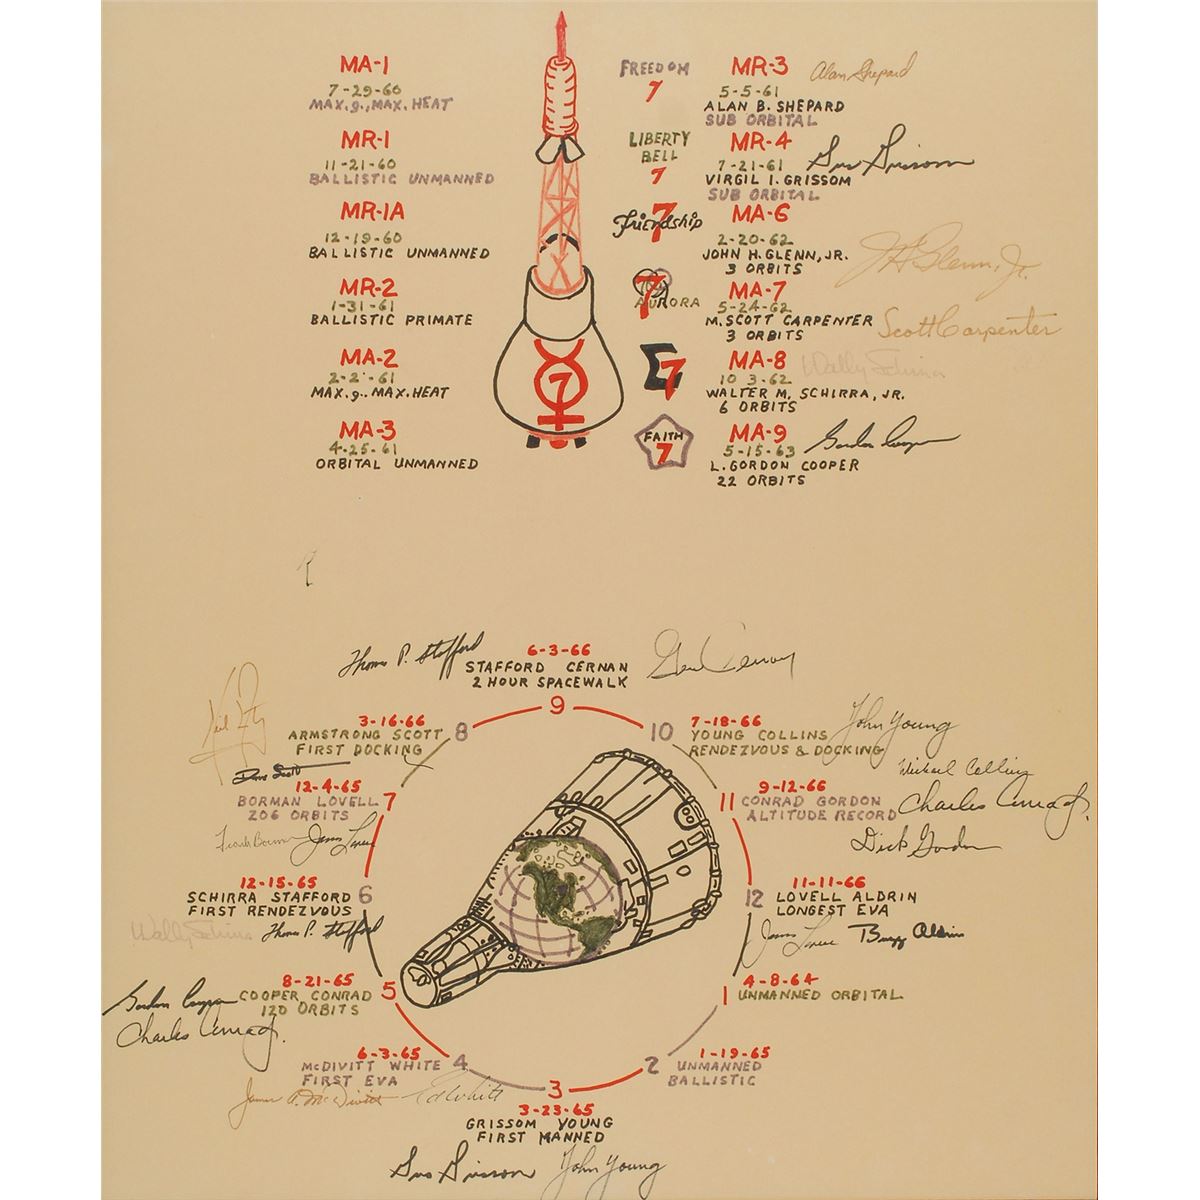 MA-1
7-29-60
MAX.g., MAX. HEAT
MR-1
11-21-60
BALLISTIC UNMANNED
MR-1A
12-19-60
BALLISTIC UNMANNED
MR-2
1-31-61
BALLISTIC PRIMATE
MA-2
2-2-61
MAX.g., MAX. HEAT
MA-3
4-25-61
ORBITAL UNMANNED
7
FREEDOM
7
MR-3
Alan Shepard
5-5-61
ALAN B. SHEPARD
SUB ORBITAL
LIBERTY
BELL
7
MR-4
7-21-61
Gus Grissom
VIRGIL I. GRISSOM
SUB ORBITAL
Friendship
7
MA-6
2-20-62
JOHN H. GLENN, JR.
3 ORBITS
JHGlenn, Jr.
7
AURORA
MA-7
5-24-62
M. SCOTT CARPENTER
3 ORBITS
Scott Carpenter
Σ7
MA-8
Wally Schirra
10 3-62
WALTER M. SCHIRRA, JR.
6 ORBITS
FAITH
7
MA-9
5-15-63
Gordon Cooper
L. GORDON COOPER
22 ORBITS
Thomas P. Stafford
6-3-66
STAFFORD CERNAN
2 HOUR SPACEWALK
9
Gene Cernan
3-16-66
ARMSTRONG SCOTT
FIRST DOCKING
8
Dave Scott
10
7-18-66
YOUNG COLLINS
RENDEZVOUS & DOCKING
John Young
Michael Collins
12-4-65
BORMAN LOVELL
206 ORBITS
7
Frank Borman James Lovell
11
9-12-66
CONRAD GORDON
ALTITUDE RECORD
Charles Conrad Jr.
Dick Gordon
12-15-65
SCHIRRA STAFFORD
FIRST RENDEZVOUS
6
Wally Schirra Thomas P. Stafford
12
11-11-66
LOVELL ALDRIN
LONGEST EVA
James Lovell Buzz Aldrin
8-21-65
COOPER CONRAD
120 ORBITS
5
Gordon Cooper
Charles Conrad Jr.
1
4-8-64
UNMANNED ORBITAL
6-3-65
McDIVITT WHITE
FIRST EVA
4
James A. McDivitt Ed White
2
1-19-65
UNMANNED
BALLISTIC
3
3-23-65
GRISSOM YOUNG
FIRST MANNED
Gus Grissom John Young